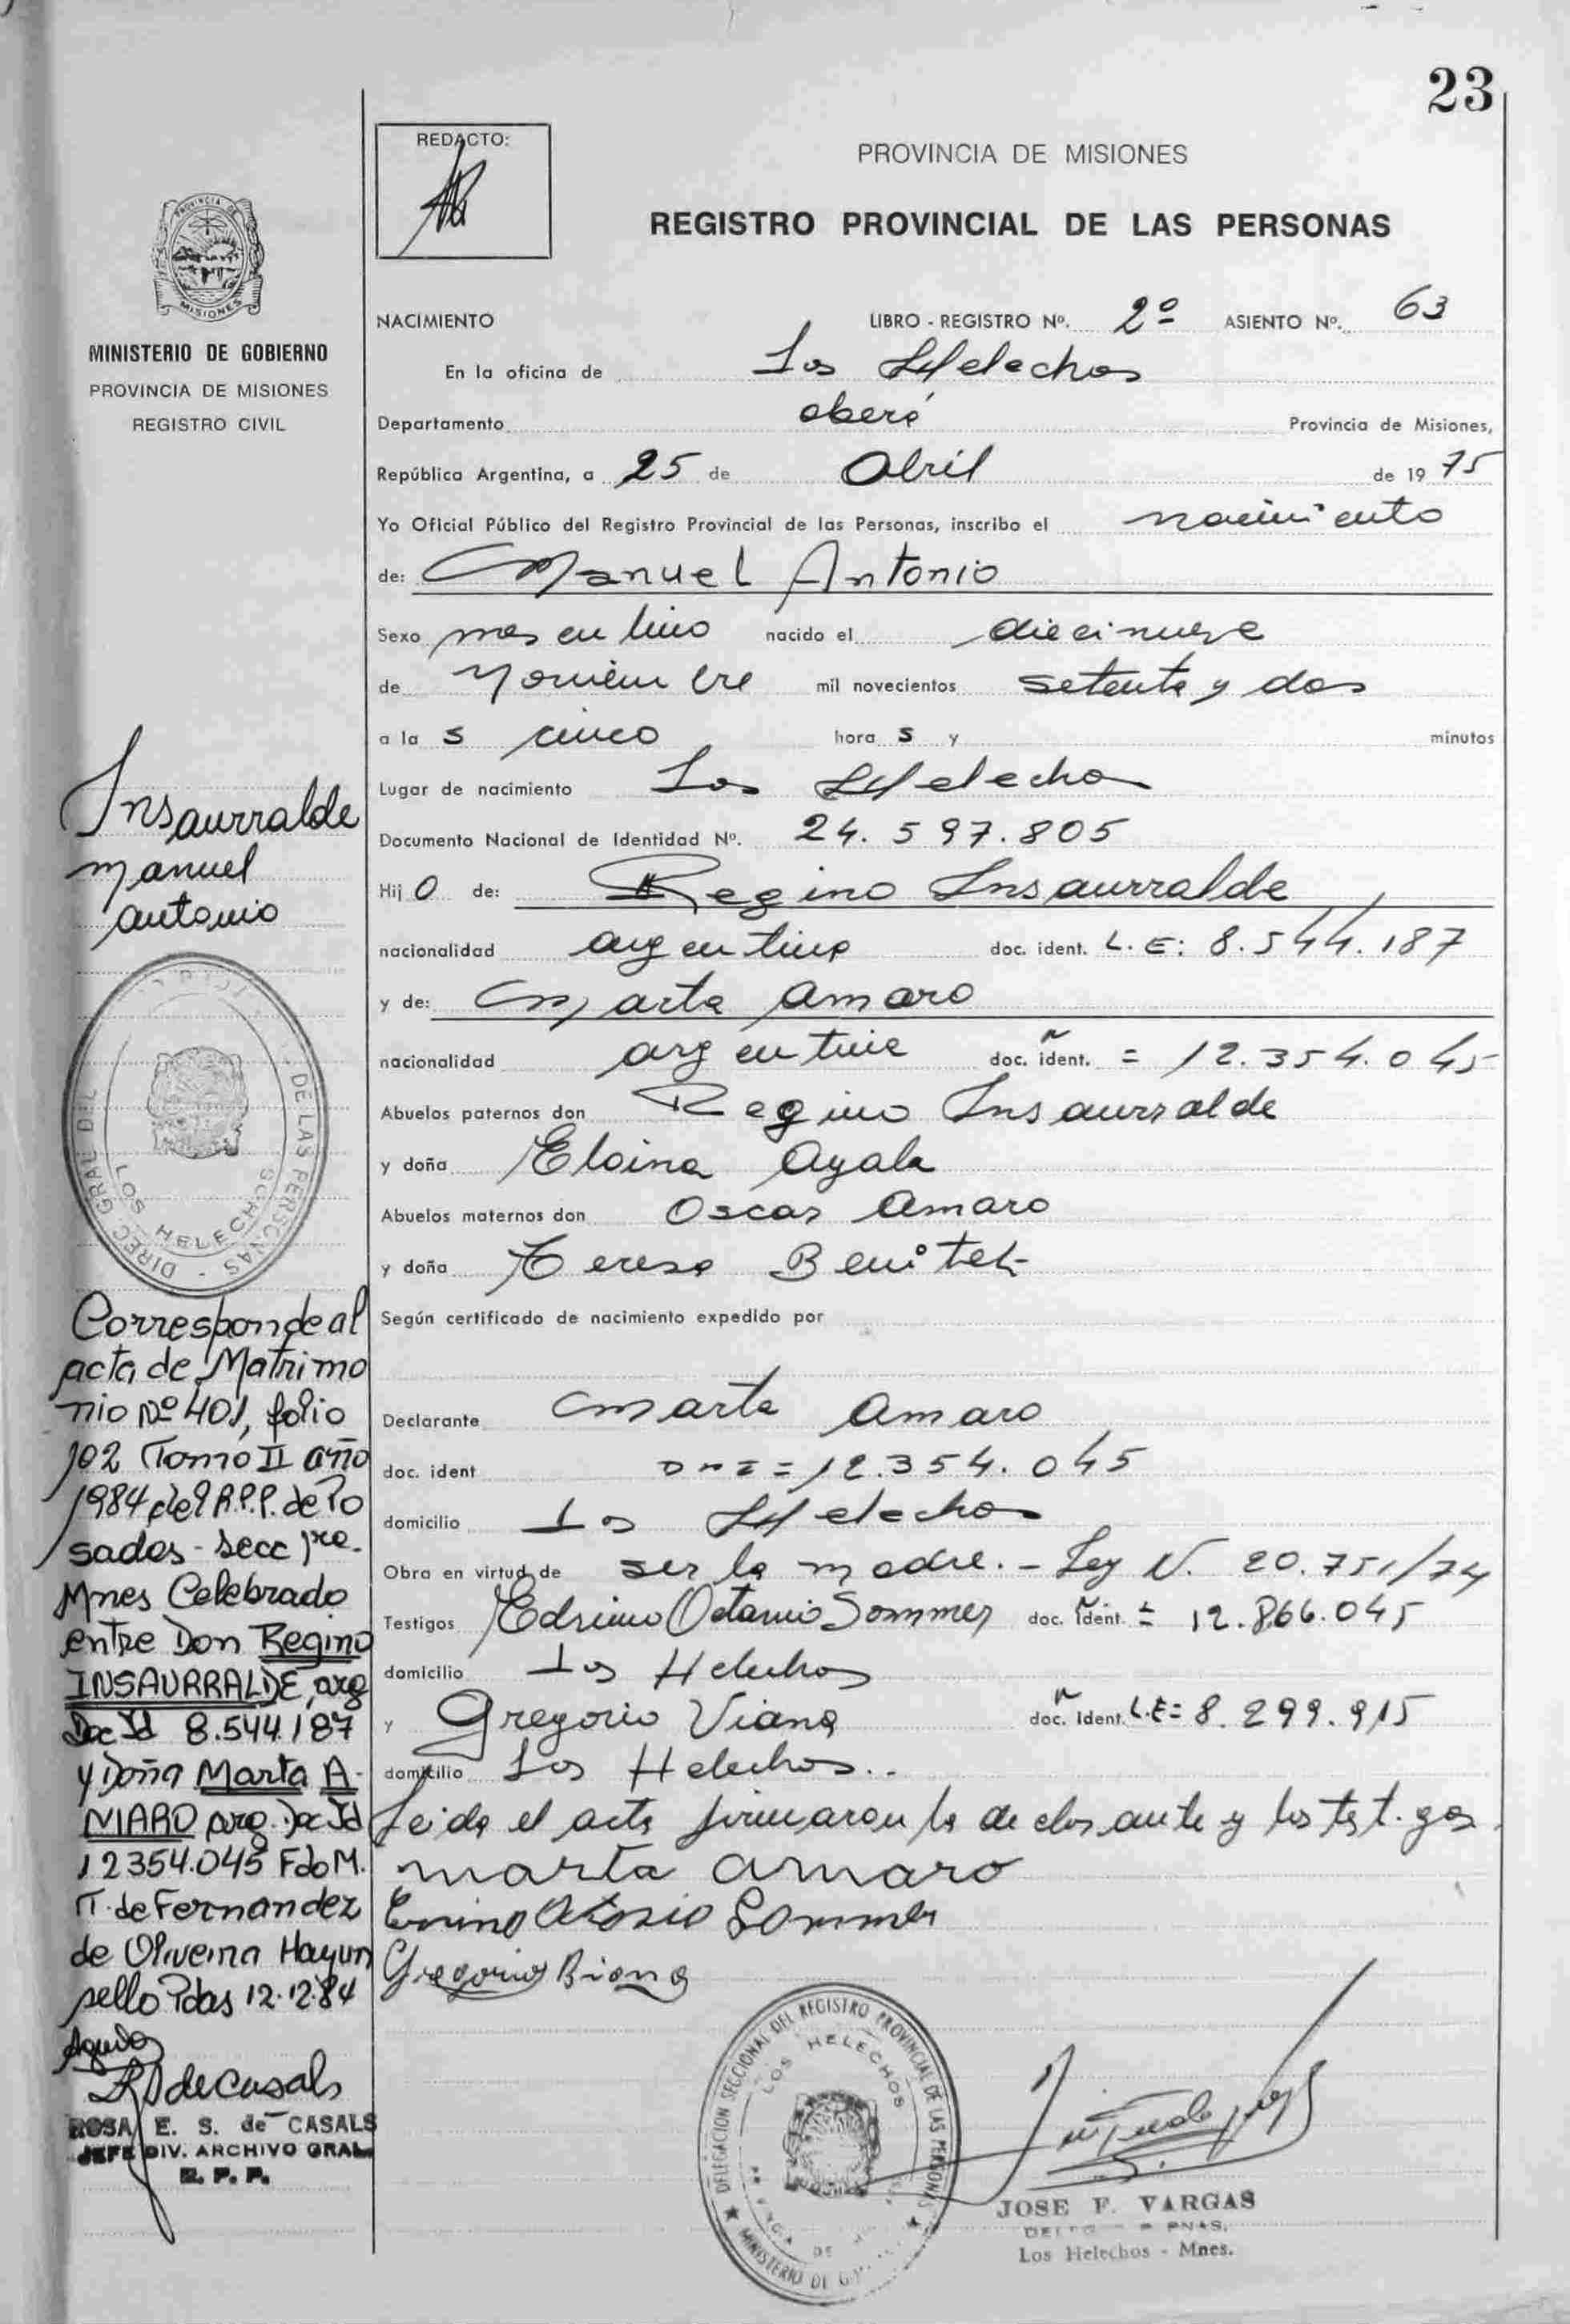 23
REDACTO:
PROVINCIA DE MISIONES
REGISTRO PROVINCIAL DE LAS PERSONAS
PROVINCIA DE
MISIONES
MINISTERIO DE GOBIERNO
PROVINCIA DE MISIONES
REGISTRO CIVIL
NACIMIENTO LIBRO - REGISTRO Nº. 2º ASIENTO Nº. 63
En la oficina de Los Helechos
Departamento oberá Provincia de Misiones,
República Argentina, a 25 de Abril de 1975
Yo Oficial Público del Registro Provincial de las Personas, inscribo el nacimiento
de: Manuel Antonio
Sexo masculino nacido el diecinueve
de Noviembre mil novecientos setenta y dos
a las cinco horas y minutos
Lugar de nacimiento Los Helechos
Documento Nacional de Identidad Nº. 24.597.805
Hijo de: Regino Insaurralde
nacionalidad argentina doc. ident. L.E: 8.544.187
y de: Marta Amaro
nacionalidad argentina doc. ident. = 12.354.045
Abuelos paternos don Regino Insaurralde
y doña Eloina Ayala
Abuelos maternos don Oscar Amaro
y doña Teresa Benitez
Según certificado de nacimiento expedido por
Declarante Marta Amaro
doc. ident DNI = 12.354.045
domicilio Los Helechos
Obra en virtud de ser la madre. - Ley N. 20.751/74
Testigos Octavio Sommer doc. ident. = 12.866.045
domicilio Los Helechos
y Gregorio Viana doc. ident. L.E = 8.299.915
domicilio Los Helechos..
Leida el acta firmaron la declarante y los testigos.
marta amaro
Sommer
Gregorio Biana
Insaurralde
Manuel
Antonio
DIREC GRAL DEL DE LAS PERSONAS
LOS HELECHOS
Corresponde al
acta de Matrimo
nio Nº 401, folio
102 Tomo II año
1984 del R.P.P. de Po
sadas - secc 1ra.
Mnes Celebrado
entre Don Regino
INSAURRALDE, arg
Doc Id 8.544.187
y Doña Marta A-
MARO arg. Doc Id
12354.045 Fdo M.
T. de Fernandez
de Oliveira Hayun
sello Pdas 12.12.84
de Casals
ROSA E. S. de CASALS
JEFE DIV. ARCHIVO GRAL
R. P. P.
DELEGACION SECCIONAL DEL REGISTRO PROVINCIAL DE LAS PERSONAS
LOS HELECHOS
MINISTERIO DE
JOSE F. VARGAS
Los Helechos - Mnes.